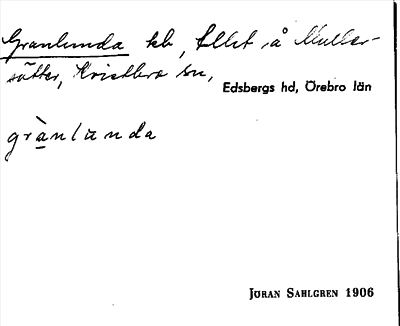 Granlunda kb, fllt å Muller-
sätter, Kvistbro sn,
Edsbergs hd, Örebro län
grànlunda
JÖRAN SAHLGREN 1906